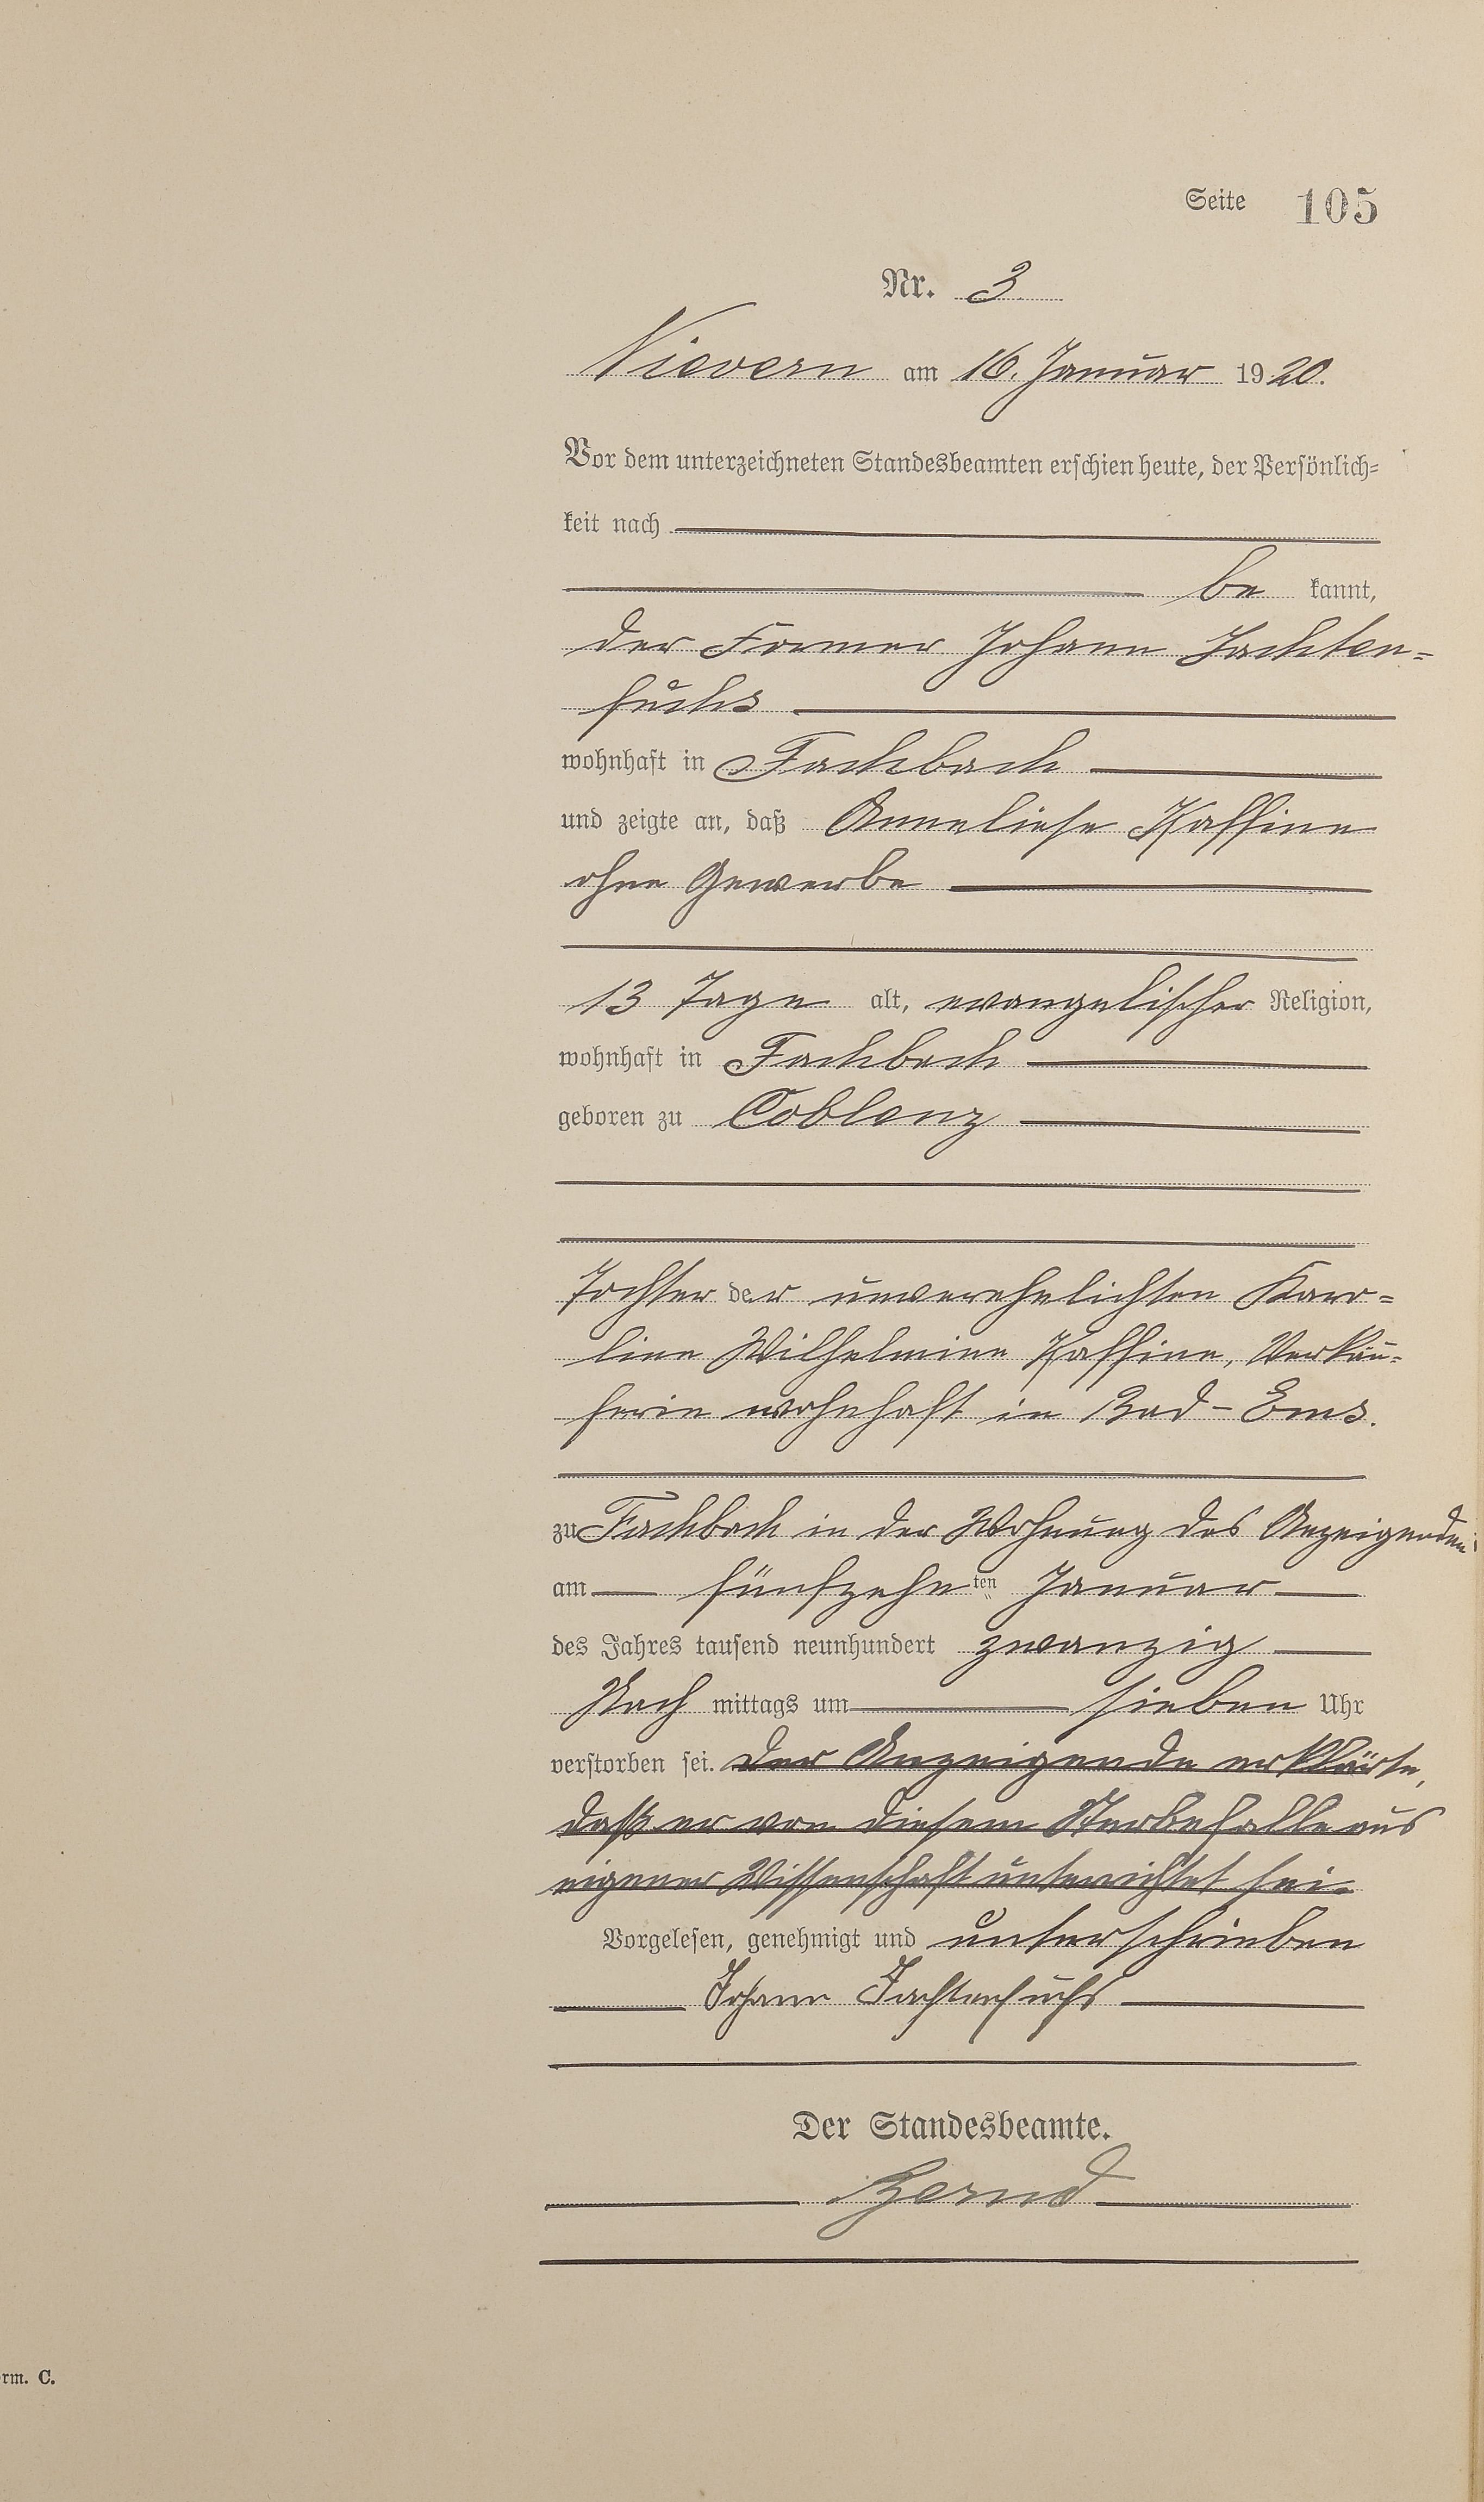 Seite 105
Nr. 3
Nievern am 16. Januar 1920.
Vor dem unterzeichneten Standesbeamten erschien heute, der Persönlich-
keit nach
be kannt,
der Former Johann Jachten-
fuchs
wohnhaft in Fachbach
und zeigte an, daß Anneliese
ohne Gewerbe
13 Tage alt, evangelischer Religion,
wohnhaft in Fachbach
geboren zu Coblenz
Tochter der unverehelichten Karo-
line Wilhelmine Verkäu-
ferin wohnhaft in Bad-Ems.
zu Fachbach in der Wohnung des Anzeigenden
am fünfzehnten Januar
des Jahres tausend neunhundert zwanzig
Nach mittags um sieben Uhr
verstorben sei. Der Anzeigende erklärte,
daß er von diesem Sterbefalle aus
eigener Wissenschaft unterrichtet sei.
Vorgelesen, genehmigt und unterschrieben
Johann Jachtenfuchs
Der Standesbeamte.
rm. C.